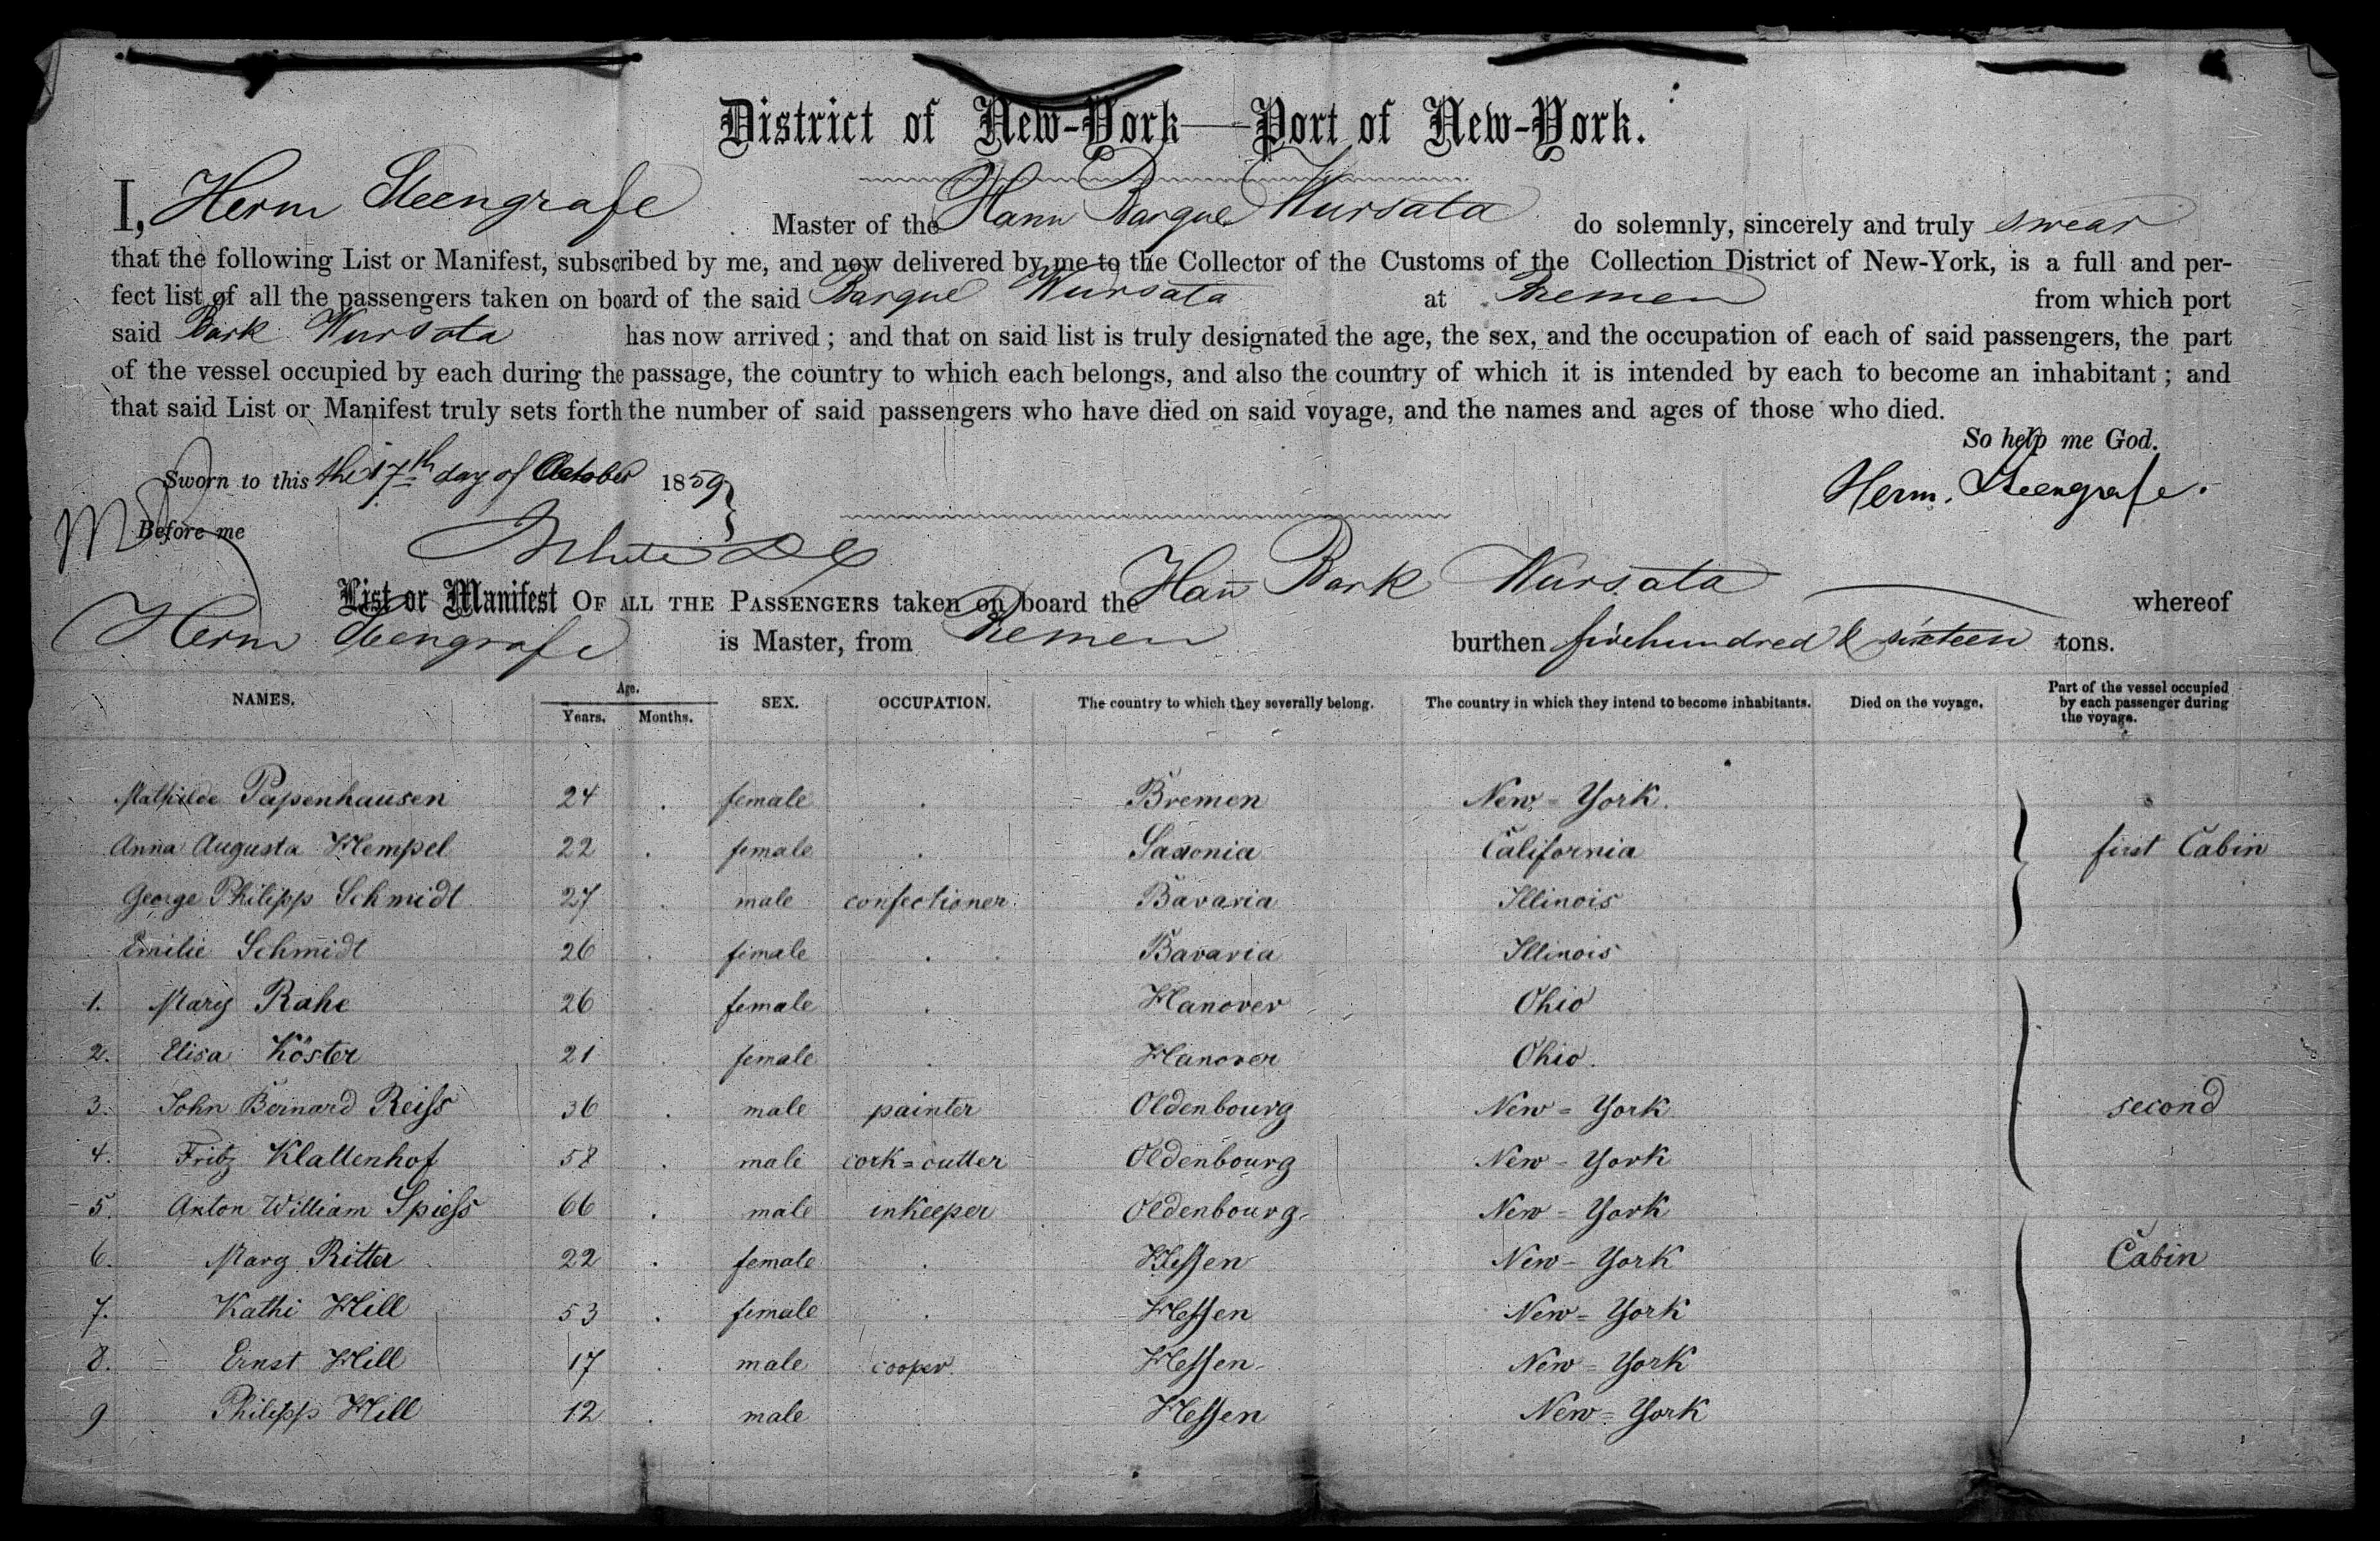 District of New-York—Port of New-York.
I, Herm Steengrafe Master of the Hann Barque Wursata do solemnly, sincerely and truly swear
that the following List or Manifest, subscribed by me, and now delivered by me to the Collector of the Customs of the Collection District of New-York, is a full and per-
fect list of all the passengers taken on board of the said Barque Wursata at Bremen from which port
said Bark Wursata has now arrived; and that on said list is truly designated the age, the sex, and the occupation of each of said passengers, the part
of the vessel occupied by each during the passage, the country to which each belongs, and also the country of which it is intended by each to become an inhabitant; and
that said List or Manifest truly sets forth the number of said passengers who have died on said voyage, and the names and ages of those who died.
So help me God.
Sworn to this the 17th day of October 1859
Herm. Steengrafe.
Before me
White
List or Manifest OF ALL THE PASSENGERS taken on board the Han Bark Wursata whereof
Herm Steengrafe is Master, from Bremen burthen fivehundred & sixteen tons.
NAMES. Age. Years. Months. SEX. OCCUPATION. The country to which they severally belong. The country in which they intend to become inhabitants. Died on the voyage. Part of the vessel occupied by each passenger during the voyage.
Mathilde Papenhausen 24 . female . Bremen New-York.
Anna Augusta Hempel 22 . female . Saxonia California first Cabin
George Philipp Schmidt 27 . male confectioner Bavaria Illinois
Emilie Schmidt 26 . female . Bavaria Illinois
1. Mary Rahe 26 . female . Hanover Ohio
2. Elisa Köster 21 . female . Hanover Ohio.
3. John Bernard Reiſs 36 . male painter Oldenbourg New=York second
4. Fritz Klattenhof 58 . male cork=cutter Oldenbourg New-York
5. Anton William Spieſs 66 . male inkeeper Oldenbourg New-York
6. Mary Ritter 22 . female . Heſsen New-York Cabin
7. Kathi Hill 53 . female . Heſsen New=York
8. Ernst Hill 17 . male cooper. Heſsen New=York
9 Philipp Hill 12 . male . Heſsen New=York